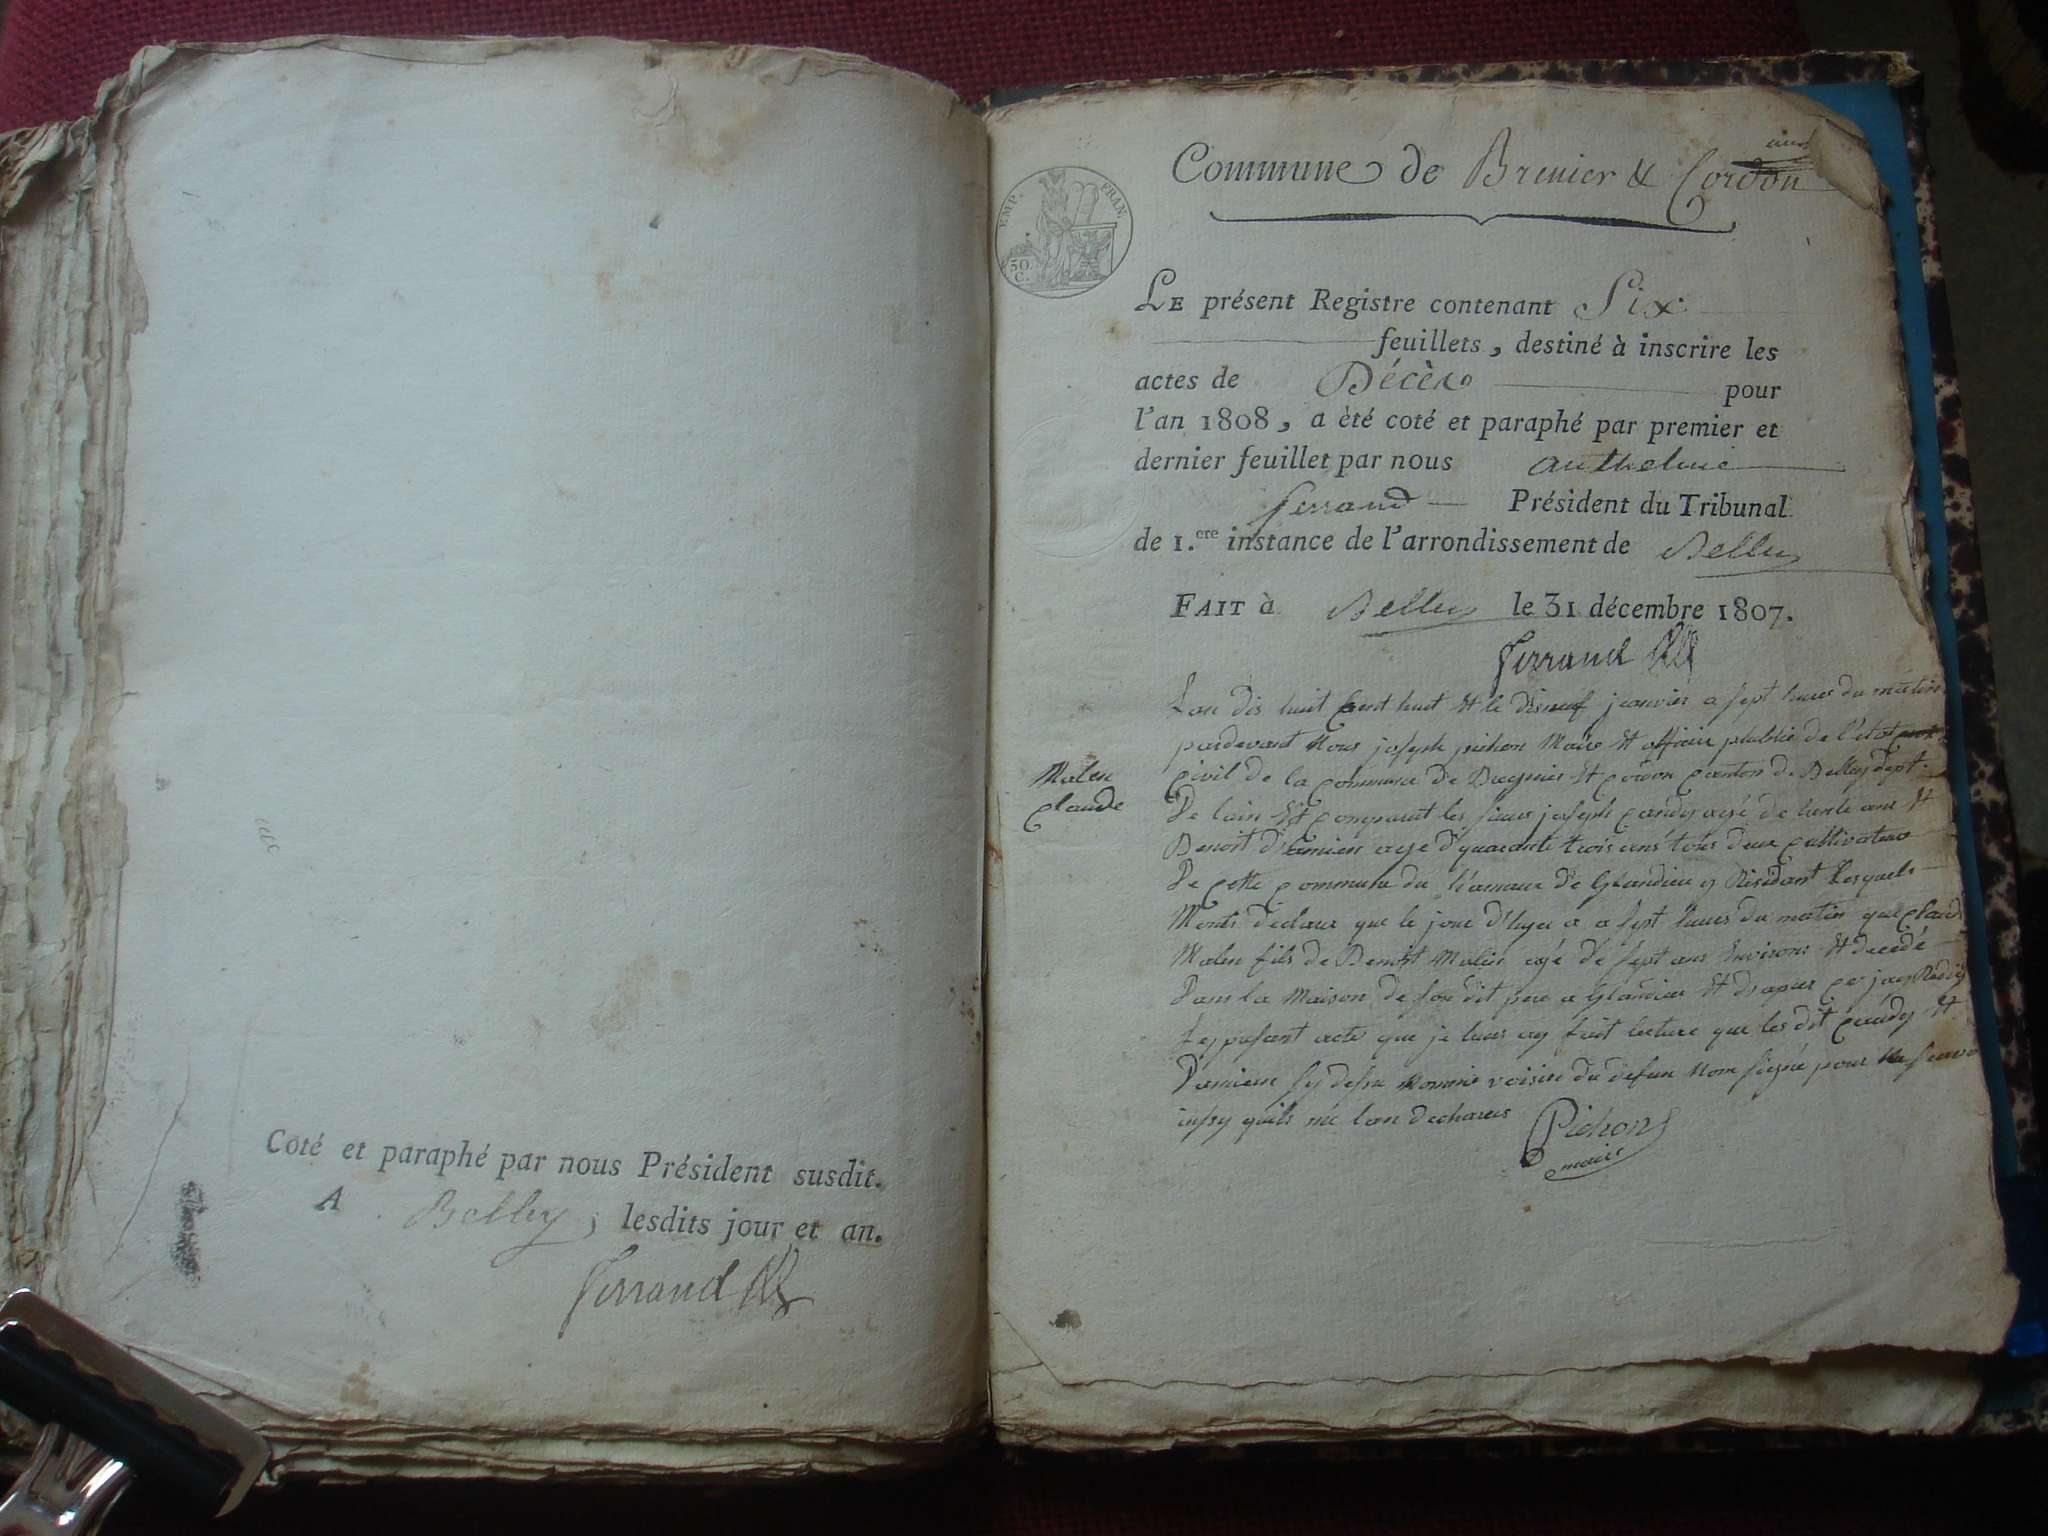 Coté et paraphé par nous Président susdit.
A Belley, lesdits jour et an.
Ferrand
Commune de Brenier & Cordon
EMP. FRAN.
50 C.
LE présent Registre contenant Six
feuillets, destiné à inscrire les
actes de Décès pour
l'an 1808, a èté coté et paraphé par premier et
dernier feuillet par nous anthelme
ferrand Président du Tribunal
de 1.ere instance de l'arrondissement de Belley
FAIT à Belley le 31 décembre 1807.
Ferrand
Lan dis huit Cent huit Et le disneuf janvier a sept heures du matin
pardevant Nous joseph pichon Maire Et officier publié de l'état
Malen
claude
Civil de la Commune de Et Cordon Canton de Belley dept.
De lain Et Comparut les sieurs joseph agé de trente ans Et
Benoit Damien age d'quarante trois ans tous deux Cultivateurs
De Cette Commune du hamaux de Glandieu y Résidant Lesquels
Monts déclaré que le jour d'hyer a sept heures du matin que Claude
Malen fils de Benoit Malen agé de sept ans Environs Et décédé
Dans la Maison de son dit pere a Glandieu Et dapres Ce jay Rédigé
Le present acte que je leurs ay fait lecture que les dit Et
Damien voisin du defun Nom signé pour Ne
insy quils mé lan déclarés
Pichon
maire